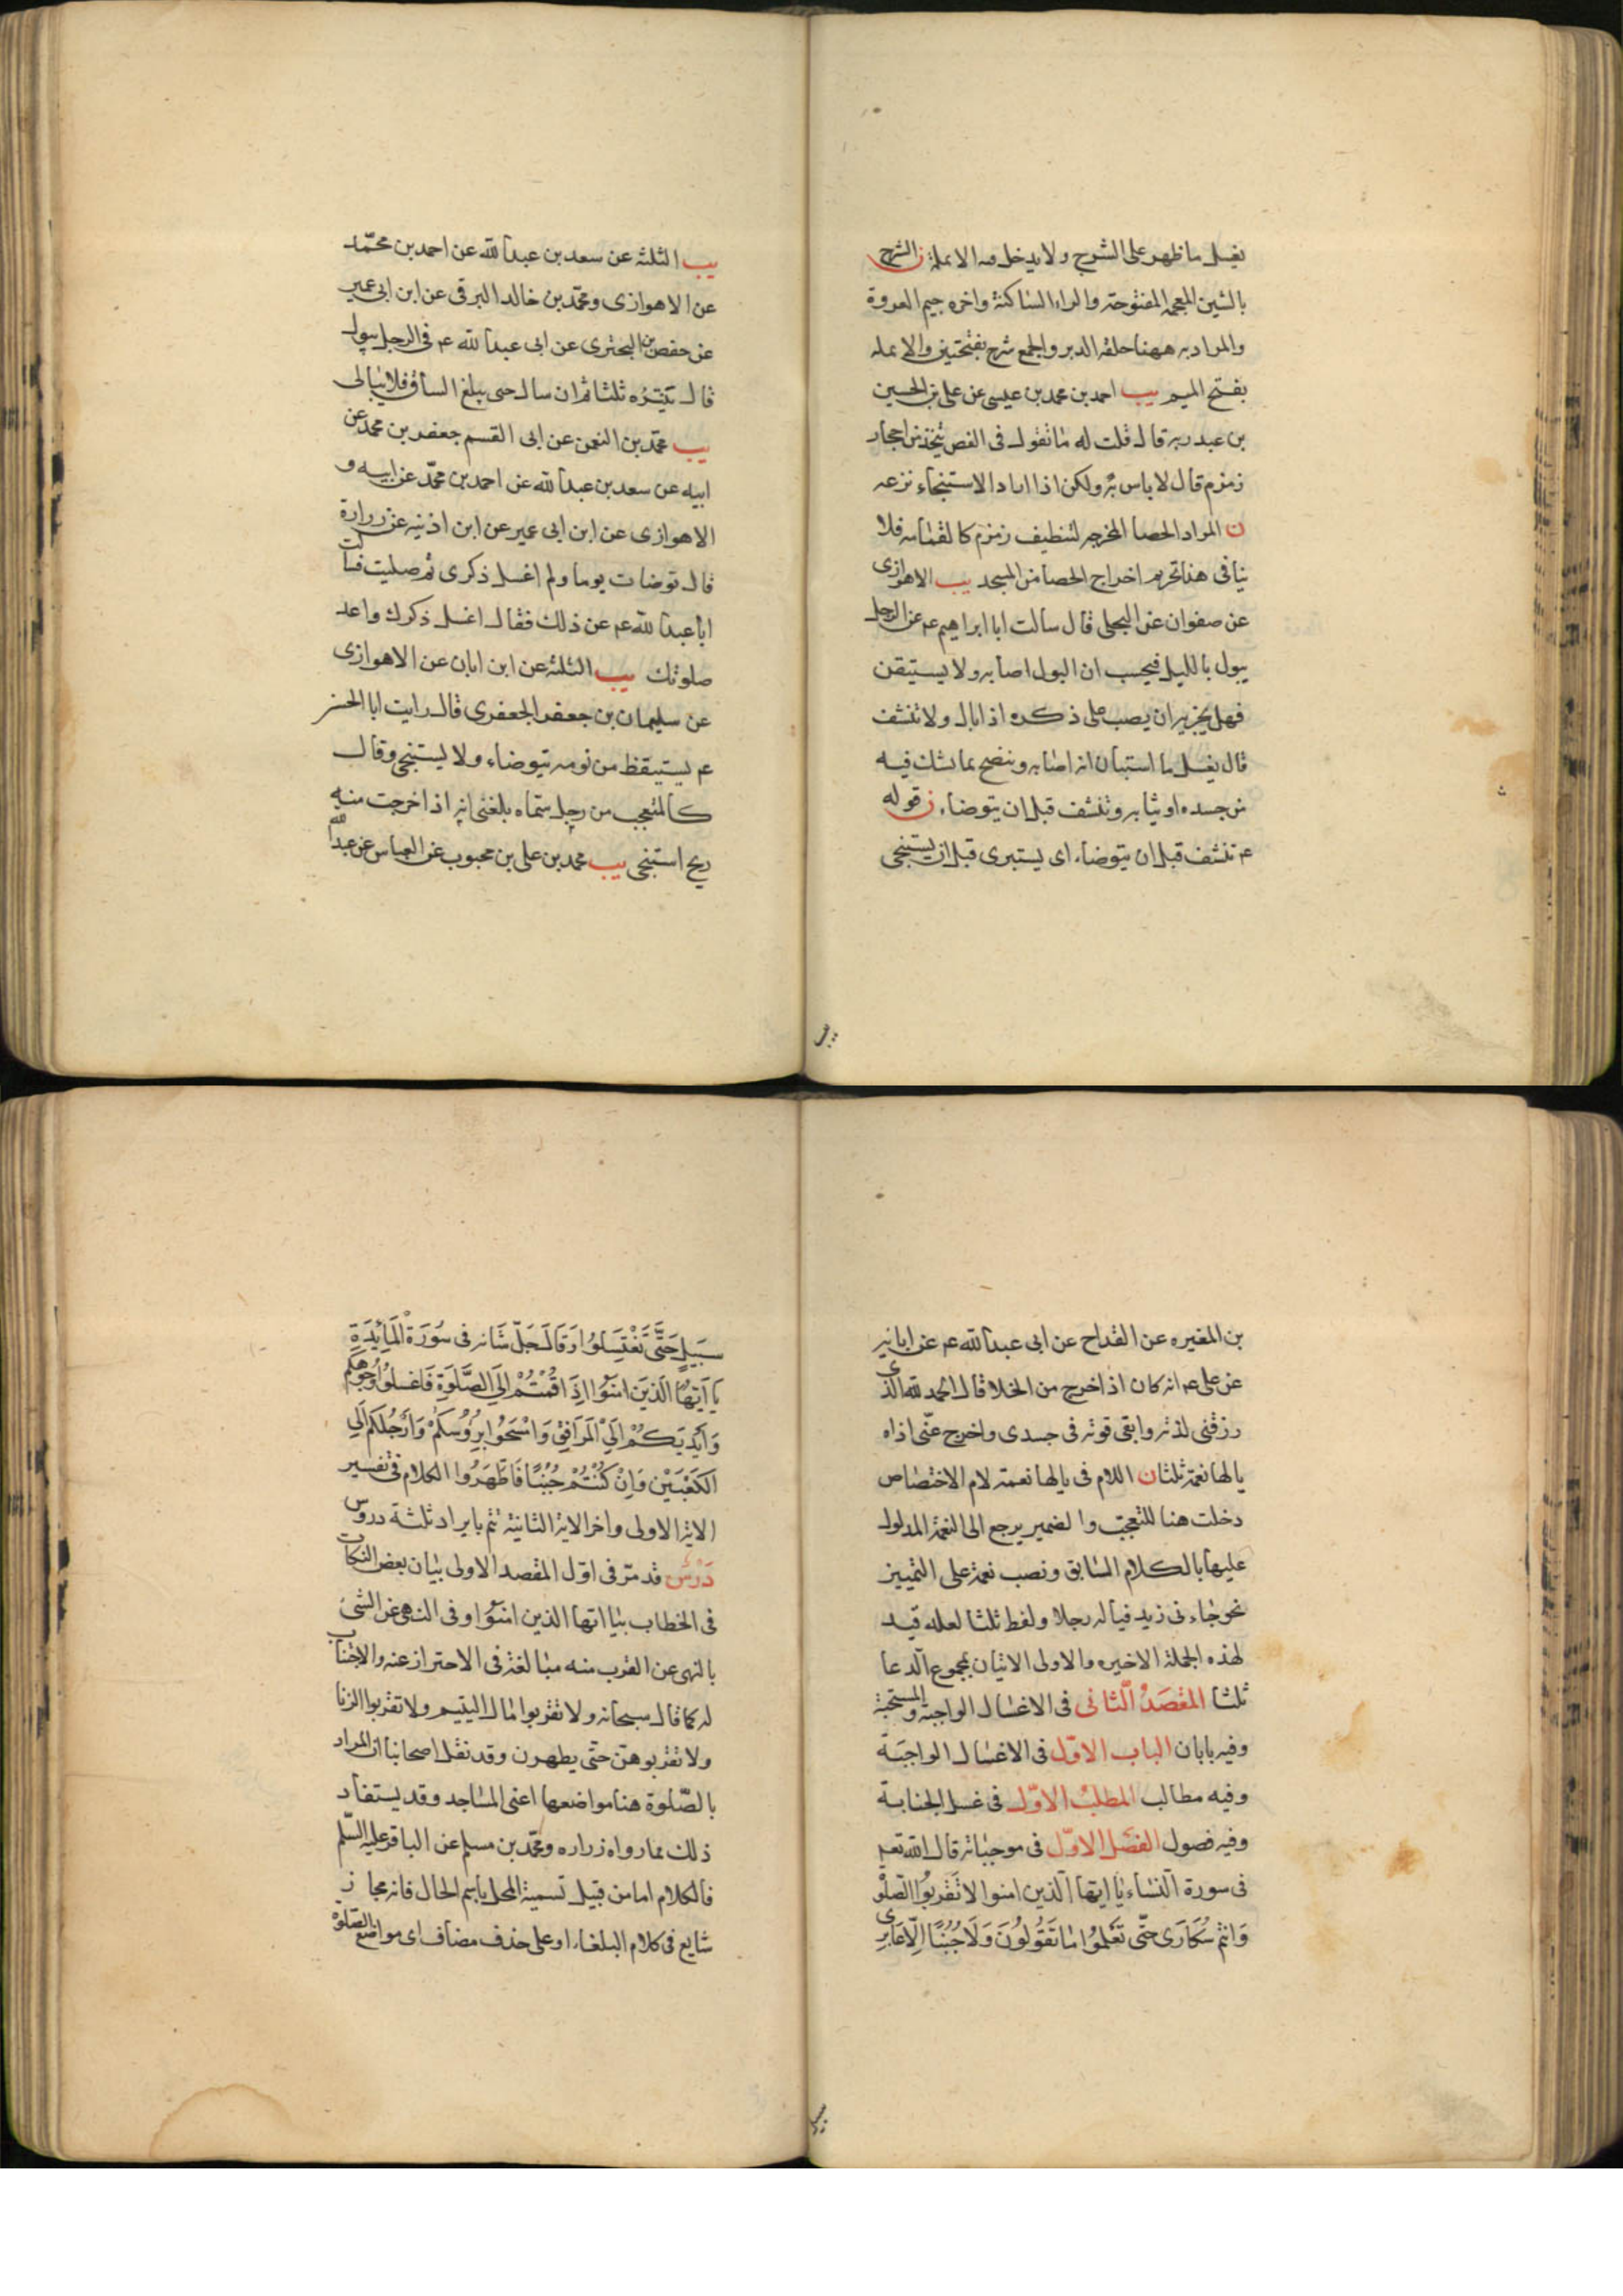 يغسل ما ظهر على الشرج ولا يدخل فيه الانملة ن الشرج
بالشين المعجمه المفتوحة والراء الساكنة واخره جيم العروة
والمراد به ههنا حلقة الدبر والجمع شرج بفتحتين والانمله
بفتح الميم يب احمد بن محمد بن عيسى عن على بن الحسين
بن عبد ربه قال قلت له ما تقول فى الفص يتخذ من احجار
زمزم قال لا باس به ولكن اذا اراد الاستنجاء نزعه
ن المراد الحصا المخرجه لتنظيف زمزم كالقمامه فلا
ينافى هذا تحريم اخراج الحصا من المسجد يب الاهوازى
عن صفوان عن البجلى قال سالت ابا ابراهيم ع عن الرجل
يبول بالليل فيحسب ان البول اصابه ولا يستيقن
فهل يجزيه ان يصب على ذكره اذا بال ولا تنشف
قال يغسل ما استبان انه اصابه وينضح ما يشك فيه
من جسده او ثيابه وتنشف قبل ان يتوضاء ن قوله
ع تنشف قبل ان يتوضاء اى يستبرى قبل ان يستنجى
يب الثلثه عن سعد بن عبد الله عن احمد بن محمّد
عن الاهوازى ومحمّد بن خالد البرقى عن ابن ابى عمير
عن حفص بن البخترى عن ابى عبد الله ع فى الرجل يبول
قال ينتره ثلثا ثم ان سال حتى يبلغ الساق فلا يبالى
يب محمّد بن النعمن عن ابى القسم جعفر بن محمد عن
ابيه عن سعد بن عبد الله عن احمد بن محمّد عن ابيه و
الاهوازى عن ابن ابى عمير عن ابن اذينه عن زرارة
قال توضات يوما ولم اغسل ذكرى ثم صليت فسالت
ابا عبد الله ع عن ذلك فقال اغسل ذكرك واعد
صلوتك يب الثلثه عن ابن ابان عن الاهوازى
عن سليمان بن جعفر الجعفرى قال رايت ابا الحسن
ع يستيقظ من نومه يتوضاء ولا يستنجى وقال
كالمتعجب من رجل سماه بلغنى انه اذا خرجت منه
ريح استنجى يب محمد بن على بن محبوب عن العباس عن عبد الله
بن المغيره عن القداح عن ابى عبد الله ع عن ابائه
عن على ع انه كان اذا خرج من الخلا قال الحمد لله الذى
رزقنى لذته وابقى قوته فى جسدى واخرج عنّى اذاه
يا لها نعمة ثلثا ن اللام فى يا لها نعمه لام الاختصاص
دخلت هنا للتعجب والضمير يرجع الى النعمة المدلول
عليها بالكلام السابق ونصب نعمة على التمييز
نحو جاءنى زيد فيا له رجلا ولفظ ثلثا لعله قيد
لهذه الجملة الاخيره والاولى الاتيان بمجموع الدعا
ثلثا المقصَدُ الثّانى فى الاغسال الواجبة والمستحبة
وفيه بابان الباب الاوّل فى الاغسال الواجبَة
وفيه مطالب المطلبُ الاوّل فى غسل الجنابة
وفيه فصول الفصْل الاوّل فى موجباته قال الله تعم
فى سورة النساء يا ايها الّذين امنوا لا تَقْربُوا الصلوة
وَانْتم سُكَارَى حتّى تَعْلمُوا مَا تَقُولُونَ وَلَا جُنُبًا اِلّا عَابِرى
سَبيلٍ حَتَّى تَغْتَسِلُوا وَقَالَ جَلّ شَانه فى سُورَة الْمَائِدَةِ
يَا اَيّهَا الّذينَ امَنُوا اِذَا قُمْتُمْ اِلَى الصَّلوَة فَاغْسِلُوا وُجُوهَكُم
وَاَيْدِيَكُمْ اِلَى الْمَرَافِقِ وَامْسَحُوا بِرُؤُسِكُمْ وَاَرْجُلَكُم اِلَى
الكَعْبَيْن وَاِنْ كُنْتُمْ جُنُبًا فَاطَّهَرُوا الكلام فى تفسير
الاية الاولى واخر الاية الثانية يتم بايراد ثلثة دروس
دَرْسٌ قد مرّ فى اوّل المقصد الاولى بيان بعض النكات
فى الخطاب بيا ايها الذين امنوا وفى النهى عن الشئ
بالنهى عن القرب منه مبالغة فى الاحتراز عنه والاجتناب
له كما قال سبحانه ولا تقربوا مال اليتيم ولا تقربوا الزنا
ولا تقربوهنّ حتّى يطهرن وقد نقل اصحابنا ان المراد
بالصّلوة هنا مواضعها اعنى المساجد وقد يستفاد
ذلك مما رواه زراره ومحمّد بن مسلم عن الباقر عليه السّلم
فالكلام اما من قبيل تسمية المحل باسم الحال فانه مجاز
شايع فى كلام البلغاء او على حذف مضاف اى مواضع الصّلوة